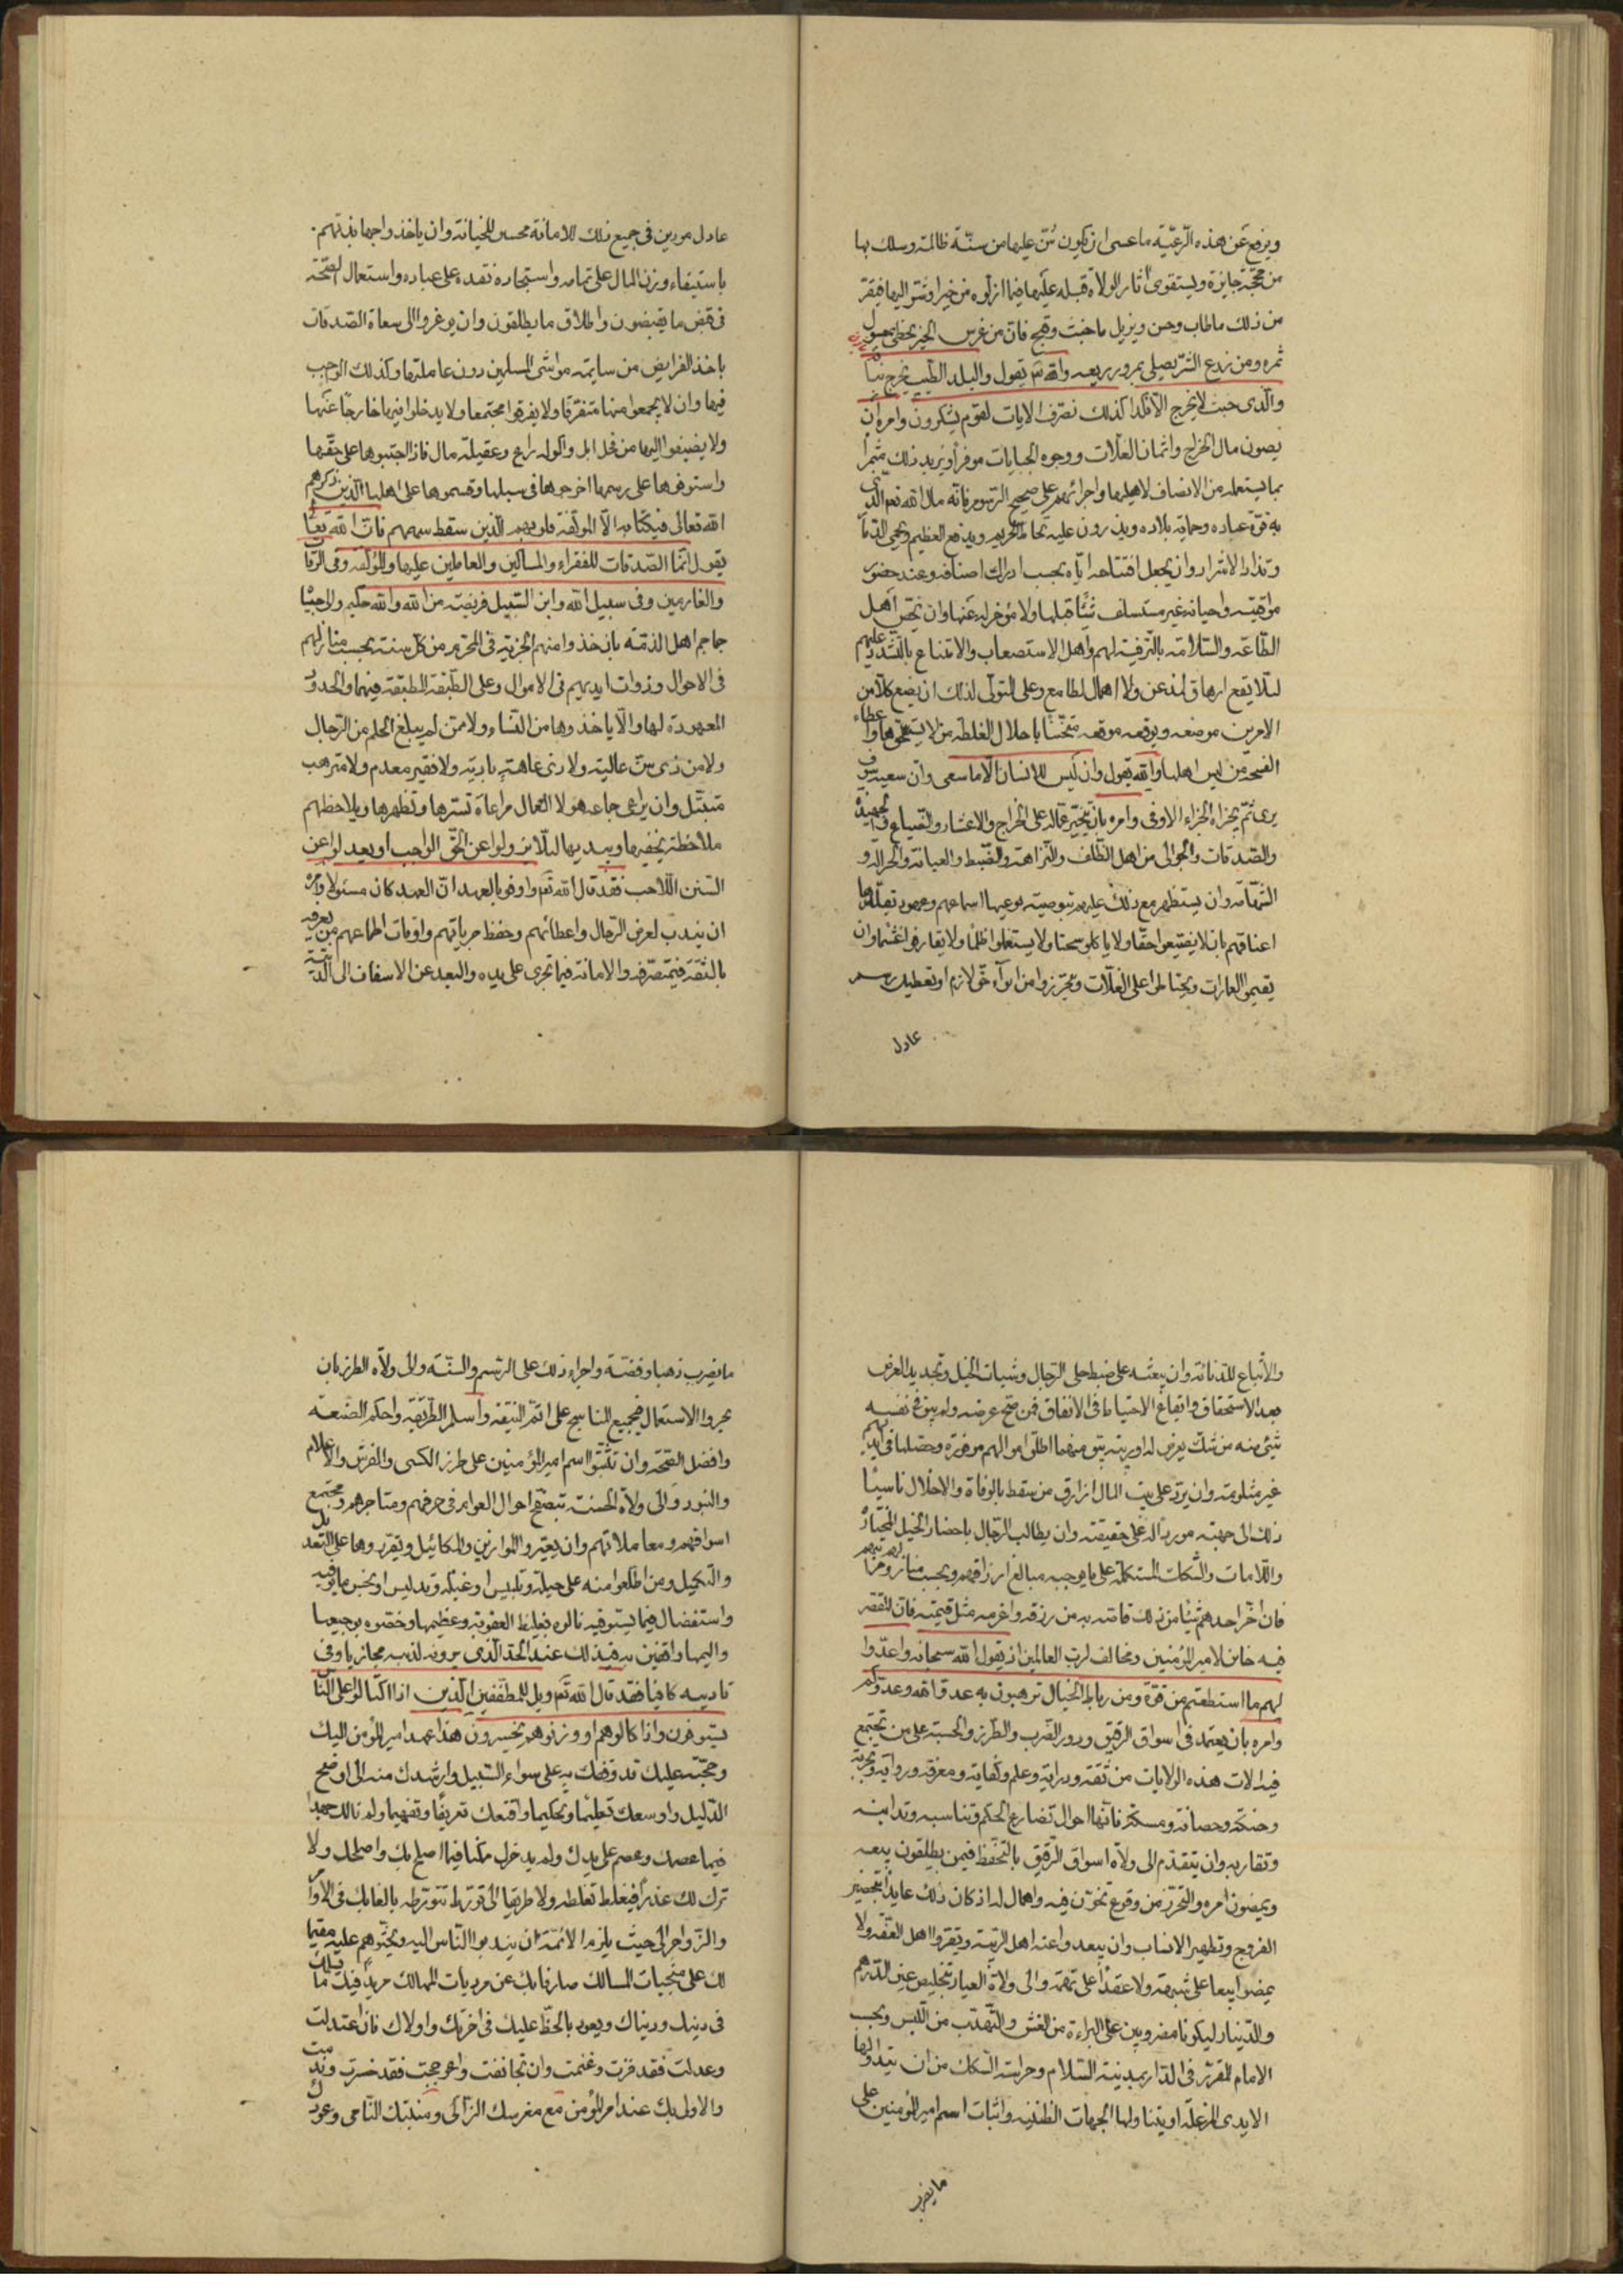 ويرفع عن هذه الرعيّة ما عسى ان يكون سُنّ عليها من سنّة ظالمة وسلك بها
من محجّة جايزة ويستقرى اثار الولاة قبله عليها فيما ازلوه من خير او شرّ اليها فيقرّ
من ذلك ما طاب وحسن ويزيل ما خبث وقبح فانّ من غرس الخير يحظى بمعسول
ثمره ومن زرع الشرّ يصلى بمرور ريعه والله تع يقول والبلد الطيّب يخرج نباته
والّذى خبث لا يخرج الّا نكدا كذلك نصرّف الايات لقوم يشكرون وامره ان
يصون مال الخراج واثمان الغلّات ووجوه الجبايات موفّرا ويزيد ذلك مثمرا
بما يستعمله من الانصاف لاهلها واجرائهم على صحيح الرسوم فانّه مال الله تع الّذى
به قوّة عباده وحماية بلاده ودرور حلبه يحاط الحريم ويدفع العظيم ويحمى الذمار
وتذاد الاشرار وان يجعل افتتاحه ايّاه بحسب ادراك اصنافه وعند حضور
مواقيته واحيانه غير مستسلف شيئا قبلها ولا مؤخر له عنها وان يخصّ اهل
الطاعة والسّلامة بالترفيه لهم واهل الاستصعاب والامتناع بالتشديد عليهم
لئلّا يقع ارهاق لمذعن ولا اهمال لطامع وعلى المتولّى لذلك ان يضع كلّا من
الامرين موضعه ويوقعه موقعه متجنّبا احلال الغلظة من لا يستحقّها واعطاء
الفسحة من ليس اهلها والله يقول وان ليس للانسان الّا ما سعى وان سعيه سوف
يرى ثمّ يجزاه الجزاء الاوفى وامره بان يتخيّر عمّاله على الخراج والاعشار والضياع والجهبذة
والصّدقات والجوالى من اهل الظلف والنّزاهة والضّبط والصيانة والجزالة و
الشهامة وان يستظهر مع ذلك عليهم بتوصية يوعيها اسماعهم وعهود يقلّدها
اعناقهم بان لا يضيّعوا حقّا ولا ياكلوا سحتا ولا يستعملوا ظلما ولا يقارفوا غشما وان
يقيموا العمارات ويحتاطوا على الغلّات ويتحرّزوا من اتواء حقّ لازم او تعطيل رسم
عادل
عادل مودين فى جميع ذلك للامانة مجتنبين للخيانة وان ياخذوا جهابذتهم
باستيفاء وزن المال على تمامه واستجادة نقده على عياره واستعمال الصّحّة
فى قبض ما يقبضون واطلاق ما يطلقون وان يوعزوا الى سعاة الصّدقات
باخذ الفرايض من سايمة مواشى المسلمين دون عاملتها وكذلك الواجب
فيها وان لا يجمعوا منها متفرّقا ولا يفرقوا مجتمعا ولا يدخلوا فيها خارجا عنها
ولا يضيفوا اليها من فحل ابل واكولة راع وعقيلة مال فاذا اجتبوها على حقّها
واستوفوها على رسمها اخرجوها فى سبلها وقسموها على اهلها الّذين ذكرهم
الله تعالى فى كتابه الّا المولّفة قلوبهم الّذين سقط سهمهم فانّ الله تعالى
يقول انّما الصّدقات للفقراء والمساكين والعاملين عليها والمؤلّفة وفى الرّقاب
والغارمين وفى سبيل الله وابن السّبيل فريضة من الله والله حكيم والى جباة
جماجم اهل الذمّة بان ياخذوا منهم الجزية فى المحرّم من كلّ سنة بحسب منازلهم
فى الاحوال وذوات ايديهم فى الاموال وعلى الطّبقة المطبقة فيها والحدود
المعهودة لها والّا ياخذوها من النساء ولا ممّن لم يبلغ الحلم من الرجال
ولا من ذى سنّ عالية ولا ذى عاهة بادية ولا فقير معدم ولا مترهب
متبتّل وان يراعى جماعة هولا العمال مراعاة تسترها وتظهرها ويلاحظهم
ملاحظة يخفيها ويبديها لئلّا يزولوا عن الحقّ الواجب او يعدلوا عن
السّنن اللاحب فقد قال الله تع واوفوا بالعهد انّ العهد كان مسئولا وامره
ان يندب لعرض الرجال واعطائهم وحفظ جراياتهم واوقات اطماعهم من يعرفه
بالثقة فى متصرّفه والامانة فيما تجرى على يده والبعد عن الاسفاف الى الدّنيّة
والاتّباع للدنائة وان يبعثه على ضبط حلى الرّجال وشيات الخيل وتجديد العرض
بعد الاستحقاق وايقاع الاحتياط فى الانفاق فمن صحّ عرضه ولم يبق فى نفسه
شئ منه من شكّ يعرض له او ريبة يتوهّمها اطلق اموالهم موفّرة وحصّلها فى ايديهم
غير مثلومة وان يردّ على بيت المال ارزاق من سقط بالوفاة والاخلال ناسبا
ذلك الى جهته موردا له على حقيقته وان يطالب الرّجال باحضار الخيل المختارة
واللّامات والشكك المستكملة على ما يوجبه مبالغ ارزاقهم وبحسب منازلهم ومراتبهم
فان اخّر احدهم شيئا من ذلك قاصّه به من رزقه واغرمه مثل قيمته فان المقصّر
فيه خاين لامير المؤمنين ومخالف لربّ العالمين اذ يقول الله سبحانه واعدّوا
لهم ما استطعتم من قوّة ومن رباط الخيل ترهبون به عدوّ الله وعدوّكم
وامره بان يعتمد فى اسواق الرقيق ودور الضّرب والطّرز والحسبة على من تجتمع
فيه الات هذه الولايات من ثقة ودراية وعلم وكفاية ومعرفة ورواية وتجربة
وحنكة وحصافة ومسكة فانّها احوال تضارع الحكم وتناسبه وتدانيه
وتقاربه وان يتقدّم الى ولاة اسواق الرّقيق بالتحفّظ فيمن يطلقون بيعه
ويمضون امره والتحرّز من وقوع تجوّز فيه واهمال له اذ كان ذلك عايدا بتحصين
الفروج وتطهير الانساب وان يبعدوا عنه اهل الرّيبة ويقرّبوا اهل العفّة ولا
يمضوا بيعا على شبهة ولا عقدا على تهمة والى ولاة العيار بتخليص عين الدّرهم
والدّينار ليكونا مضروبين على البراءة من الغشّ والتهذّب من اللبس وبحسب
الامام المقرّر فى الدار بمدينة السّلام وحراسة السّكك من ان يتداولها
الايدى المزغلة او يتناولها الجهات الظنينة واثبات اسم امير المؤمنين على
ما يضرب
ما يضرب ذهبا وفضّة واجراء ذلك على الرسم والسنّة والى ولاة الطرز بان
يجروا الاستعمال فى جميع المناسج على اتمّ النيقة واسلم الطّريقة واحكم الصّنعة
وافضل الصّحّة وان تثبّتوا اسم امير المؤمنين على طرز الكسى والفرش والاعلام
والبنود والى ولاة الحسبة بتصفّح احوال العوام فى حرفهم ومتاجرهم ومجتمع
اسواقهم ومعاملاتهم وان يعيّروا الموازين والمكائيل ويقرّروها على التعديل
والتكميل ومن اطّلعوا منه على حيلة وتلبيس او غيلة وتدليس او بخس ما يوفيه
واستفضال فيما يستوفيه نالوه بغليظ العقوبة وعظيمها وخصّوه بوجيعها
واليمها واقفين به فى ذلك عند الحدّ الّذى يرونه لذنبه مجازيا وفى
تاديبه كافيا فقد قال الله تع ويل للمطفّفين الّذين اذا اكتالوا على النّاس
يستوفون واذا كالوهم او وزنوهم يخسرون هذا عهد امير المؤمنين اليك
وحجّته عليك قد وقفك به على سواء السّبيل وارشدك منه الى اوضح
الدّليل واوسعك تعليما وتحكيما واقنعك تعريفا وتفهيما ولم يالك جهدا
فيما عصمك وعصم على يدك ولم يدخرك ممكنا فيما اصلح بك واصلحك ولا
ترك لك عذرا فى غلط تغلطه ولا طريقا الى تورّط تتورّطه بالغا بك فى الاوامر
والزّواجر الى حيث يلزم الائمّة ان يندبوا النّاس اليه ويحثّوهم عليه مقيما
لك على منجيات المسالك صارفا بك عن مرديات المهالك مريدا فيك ما يسلمك
فى دينك ودنياك ويعود بالحظّ عليك فى اخرتك واولاك فان اعتدلت
وعدلت فقد فزت وغنمت وان تجانفت واعوججت فقد خسرت وندمت
والاولى بك عند امير المؤمنين مع مغرسك الزّاكى ومنبتك النّامى وعودك